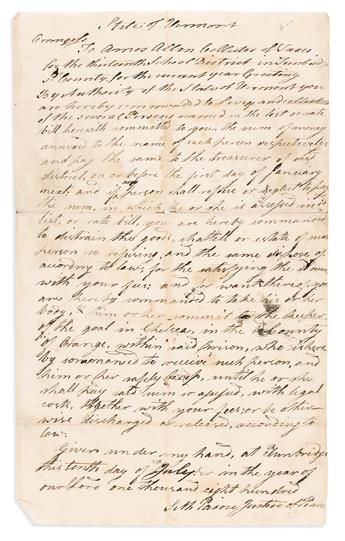 State of Vermont
Orange Ss
To Amos Allen Collector of Taxes
for the thirteenth School District in Tunbridge
sd County, for the current year Greeting
By Authority of the State of Vermont you
are hereby commanded to Levey and collect
of the several Persons named in the list or rate
bill herewith committed to you, the sum of money
annexed to the name of each person respectively
and pay the same to the treasurer of said
district, on or before the first day of January
next; and if any person shall refuse or neglect to pay
the sum, in which he or she is assessed in sd
list, or rate bill, you are hereby commanded
to distrain the goods, chattell or estate of such
person so refusing, and the same dispose of
according to law; for the satisfying the sd sum
with your fees: and for want thereof, you
are hereby commanded to take his or her
body, & him or her commit to the keeper
of the goal in Chelsea, in the sd County
of Orange, within said prison, who is here
by commanded to receive such person, and
him or her safely keep, until he or she
shall pay said sum so assessed, with legal
cost, together with your fees: or be other
wise discharged or released, according to
law.
Given under my hand, at Tunbridge
this tenth day of July in the year of
our Lord one thousand eight hundred
Seth Paine Justice of Peace